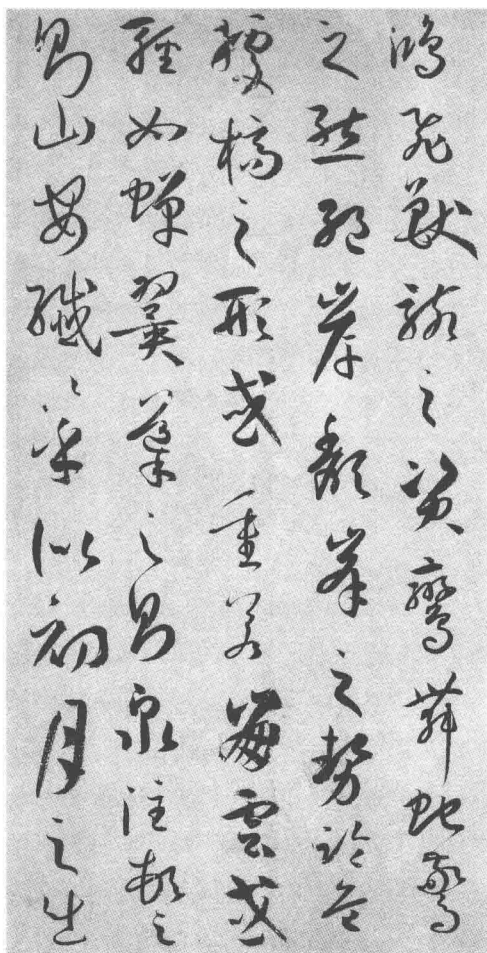 鴻飛獸駭之資鸞舞蛇驚
之態絕岸頹峯之勢臨危
據槁之形或重若崩雲或
輕如蟬翼導之則泉注頓之
則山安纖々乎似初月之出